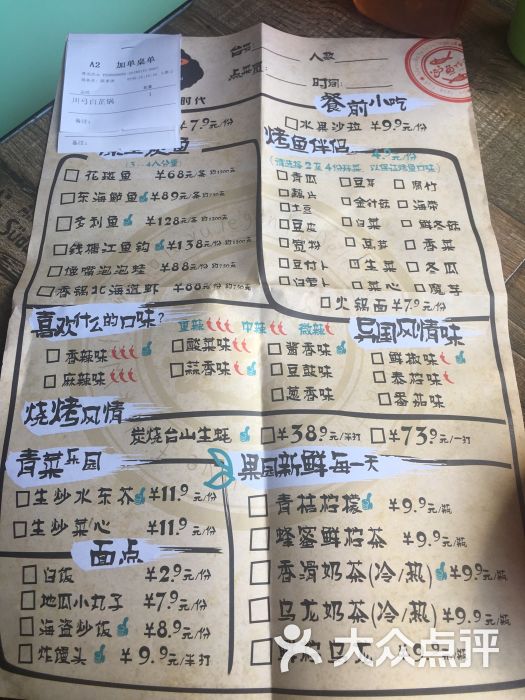 A2 加单桌单
川弓白芷锅 1
备注:
备注:
台号:
人数:
点菜员:
时间:
时代
¥7.9元/份
餐前小吃
□水果沙拉 ¥9.9元/份
烤鱼伴侣
4.9元/份
(3-4人分量)
□花斑鱼 ¥68元/条 约1200克
□东海鮰鱼 ¥89元/条
□多利鱼 ¥128元/条
□钱塘江鱼钩 ¥138元/份
□馋嘴泡泡蛙 ¥88元/份
□香锅北海道虾 ¥88元/份
□青瓜 □豆芽 □腐竹
□藕片 □金针菇 □海带
□土豆 □白菜 □鲜冬菇
□豆皮 □莴笋 □香菜
□宽粉 □生菜 □冬瓜
□豆付卜 □菜心 □魔芋
□白萝卜
□火锅面 ¥7.9元/份
喜欢什么的口味?
重辣 中辣 微辣
□香辣味 □酸菜味 □酱香味
□麻辣味 □蒜香味 □豆豉味
□葱香味
异国风情味
□鲜椒味
□泰椒味
□番茄味
烧烤风情
炭烧台山生蚝 □¥38.9元/半打 □¥73.9元/一打
青菜乐园
□生炒水东芥 ¥11.9元/份
□生炒菜心 ¥11.9元/份
面点
□白饭 ¥2.9元/份
□地瓜小丸子 ¥7.9元/份
□海盗炒饭 ¥8.9元/份
□炸馒头 ¥9.9元/半打
果园新鲜每一天
□青桔柠檬 ¥9.9元/瓶
□蜂蜜鲜柠茶 ¥9.9元/瓶
□香滑奶茶(冷/热) ¥9.9元/瓶
□乌龙奶茶(冷/热) ¥9.9元/瓶
大众点评